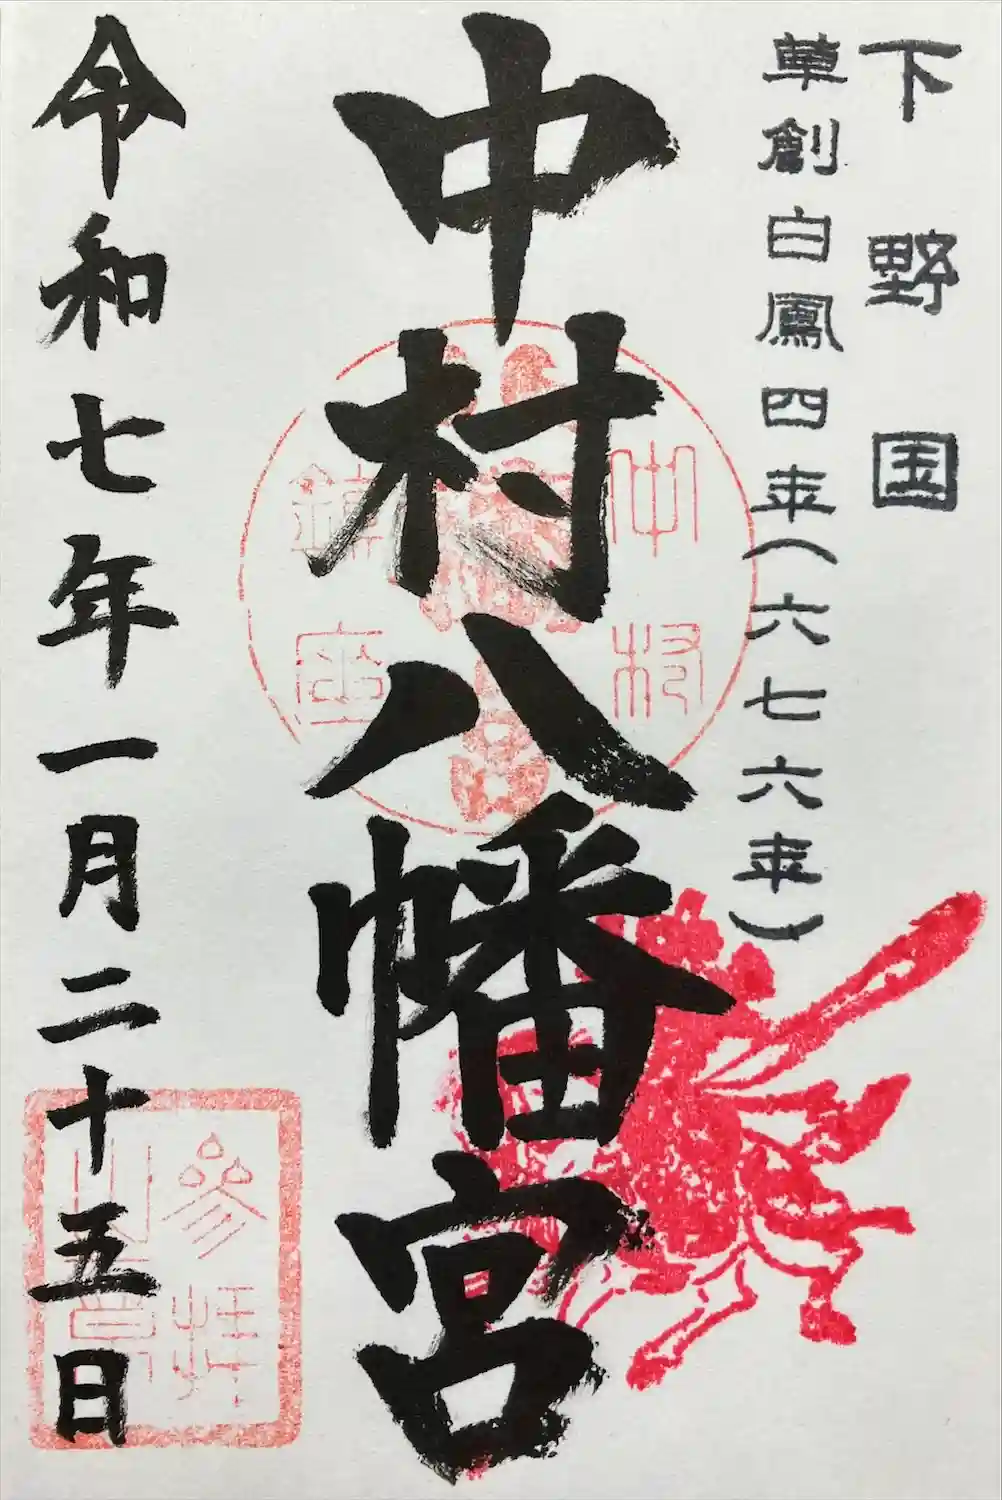 下野国
草創白鳳四年(六七六年)
中村八幡宮
中村
鎮座
令和七年一月二十五日
参拝